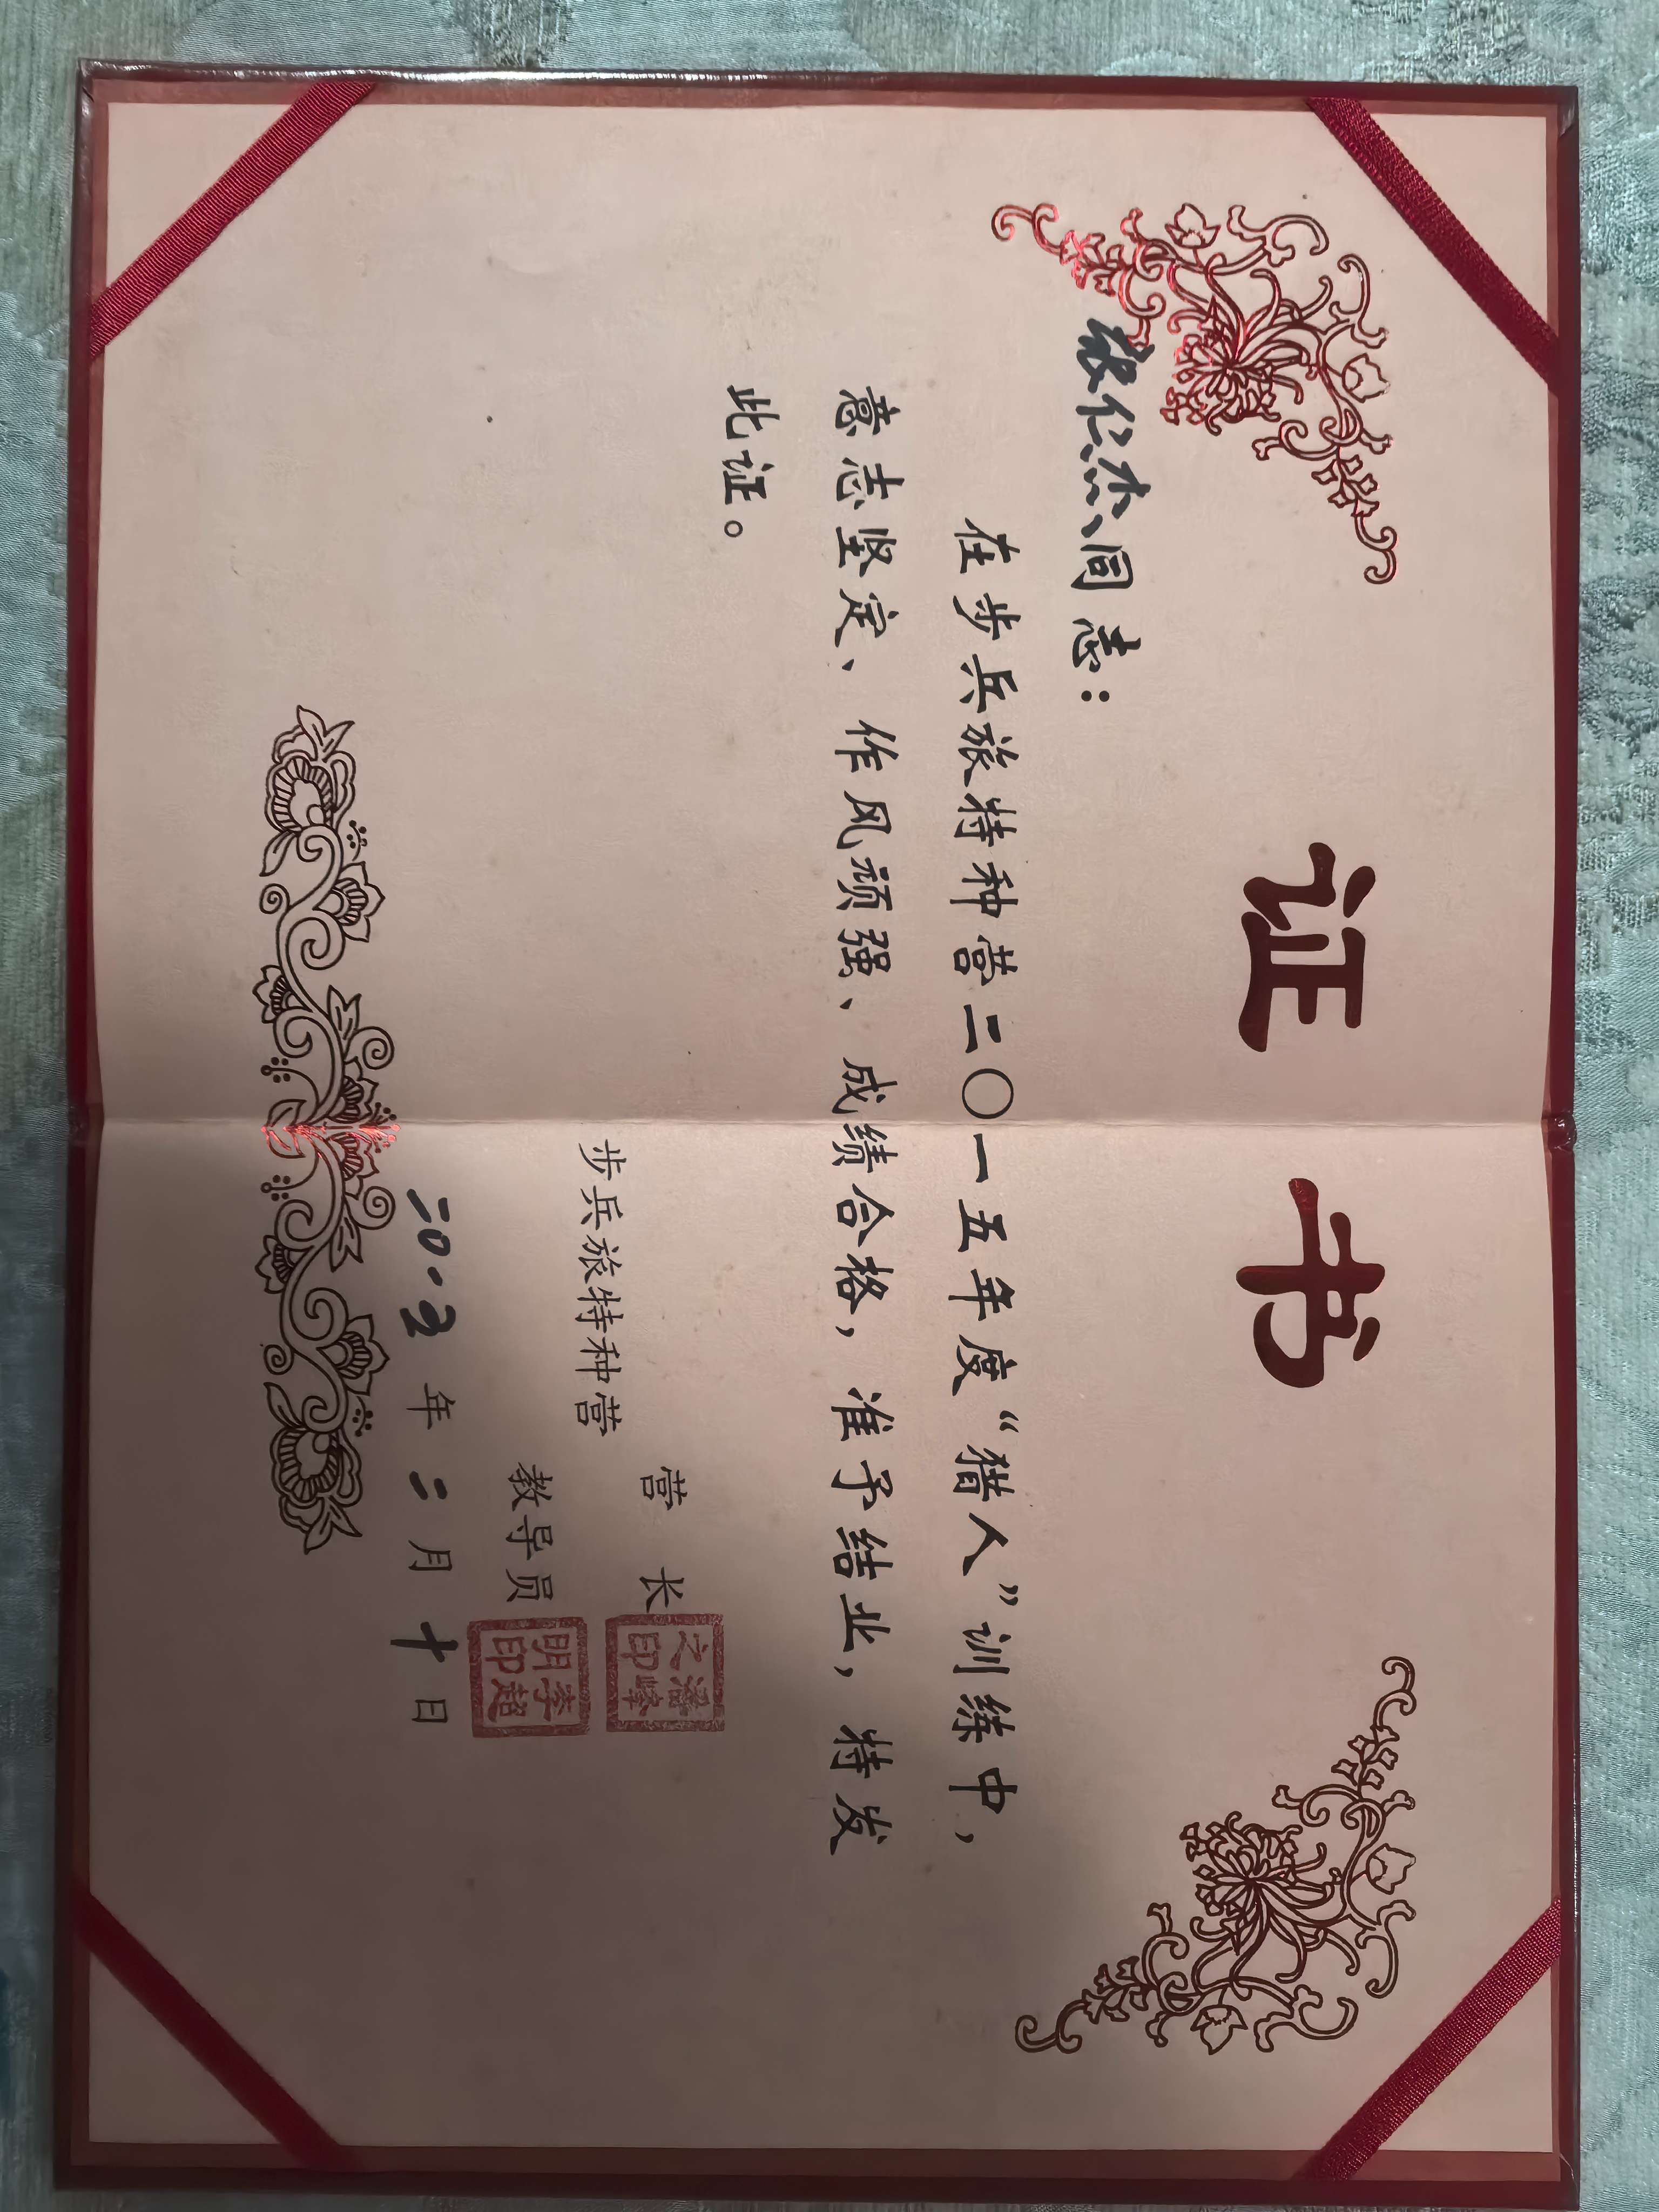 证书
张仁杰同志：
在步兵旅特种营二〇一五年度“猎人”训练中，
意志坚定、作风顽强、成绩合格，准予结业，特发
此证。
营长 潘峰之印
步兵旅特种营
教导员 李超明印
二〇一五年二月十日